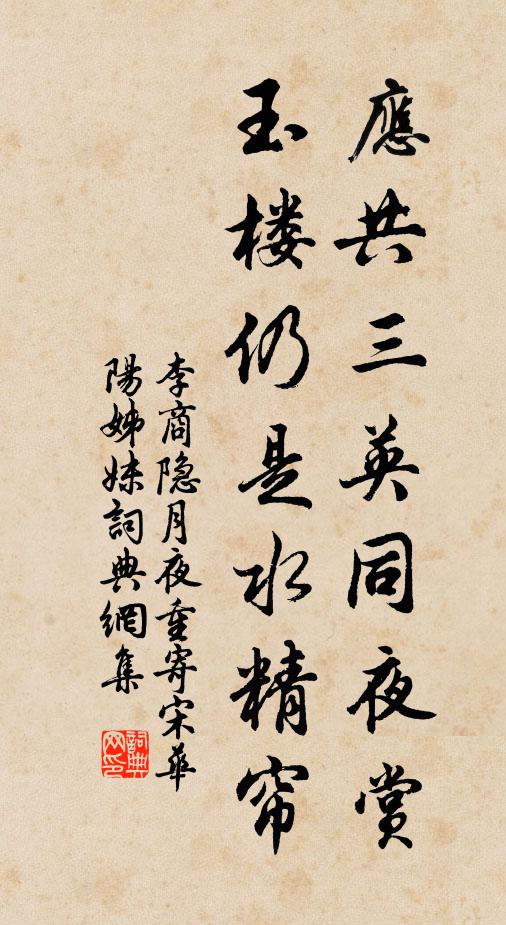 應共三英同夜賞
玉楼仍是水精帘
李商隐月夜重寄宋華
陽姊妹詞典網集
詞典網印